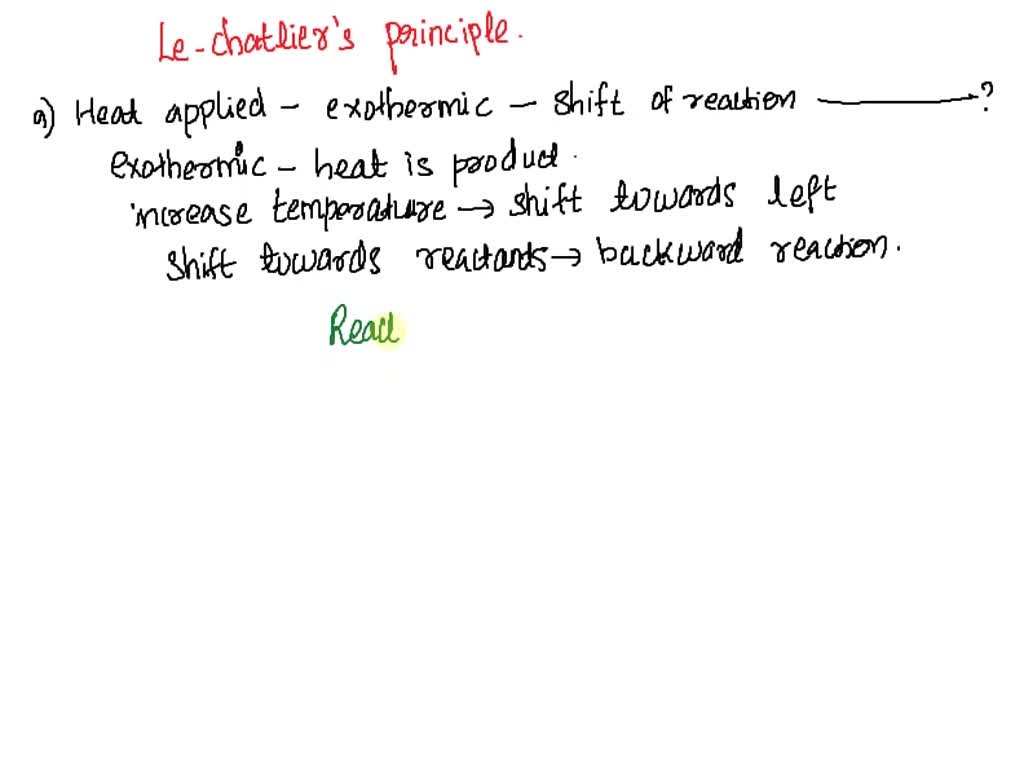 Le-chatlier's principle.
a) Heat applied - exothermic - shift of reaction ⟶ ?
exothermic - heat is product.
increase temperature → shift towards left
shift towards reactants → backward reaction.
Read